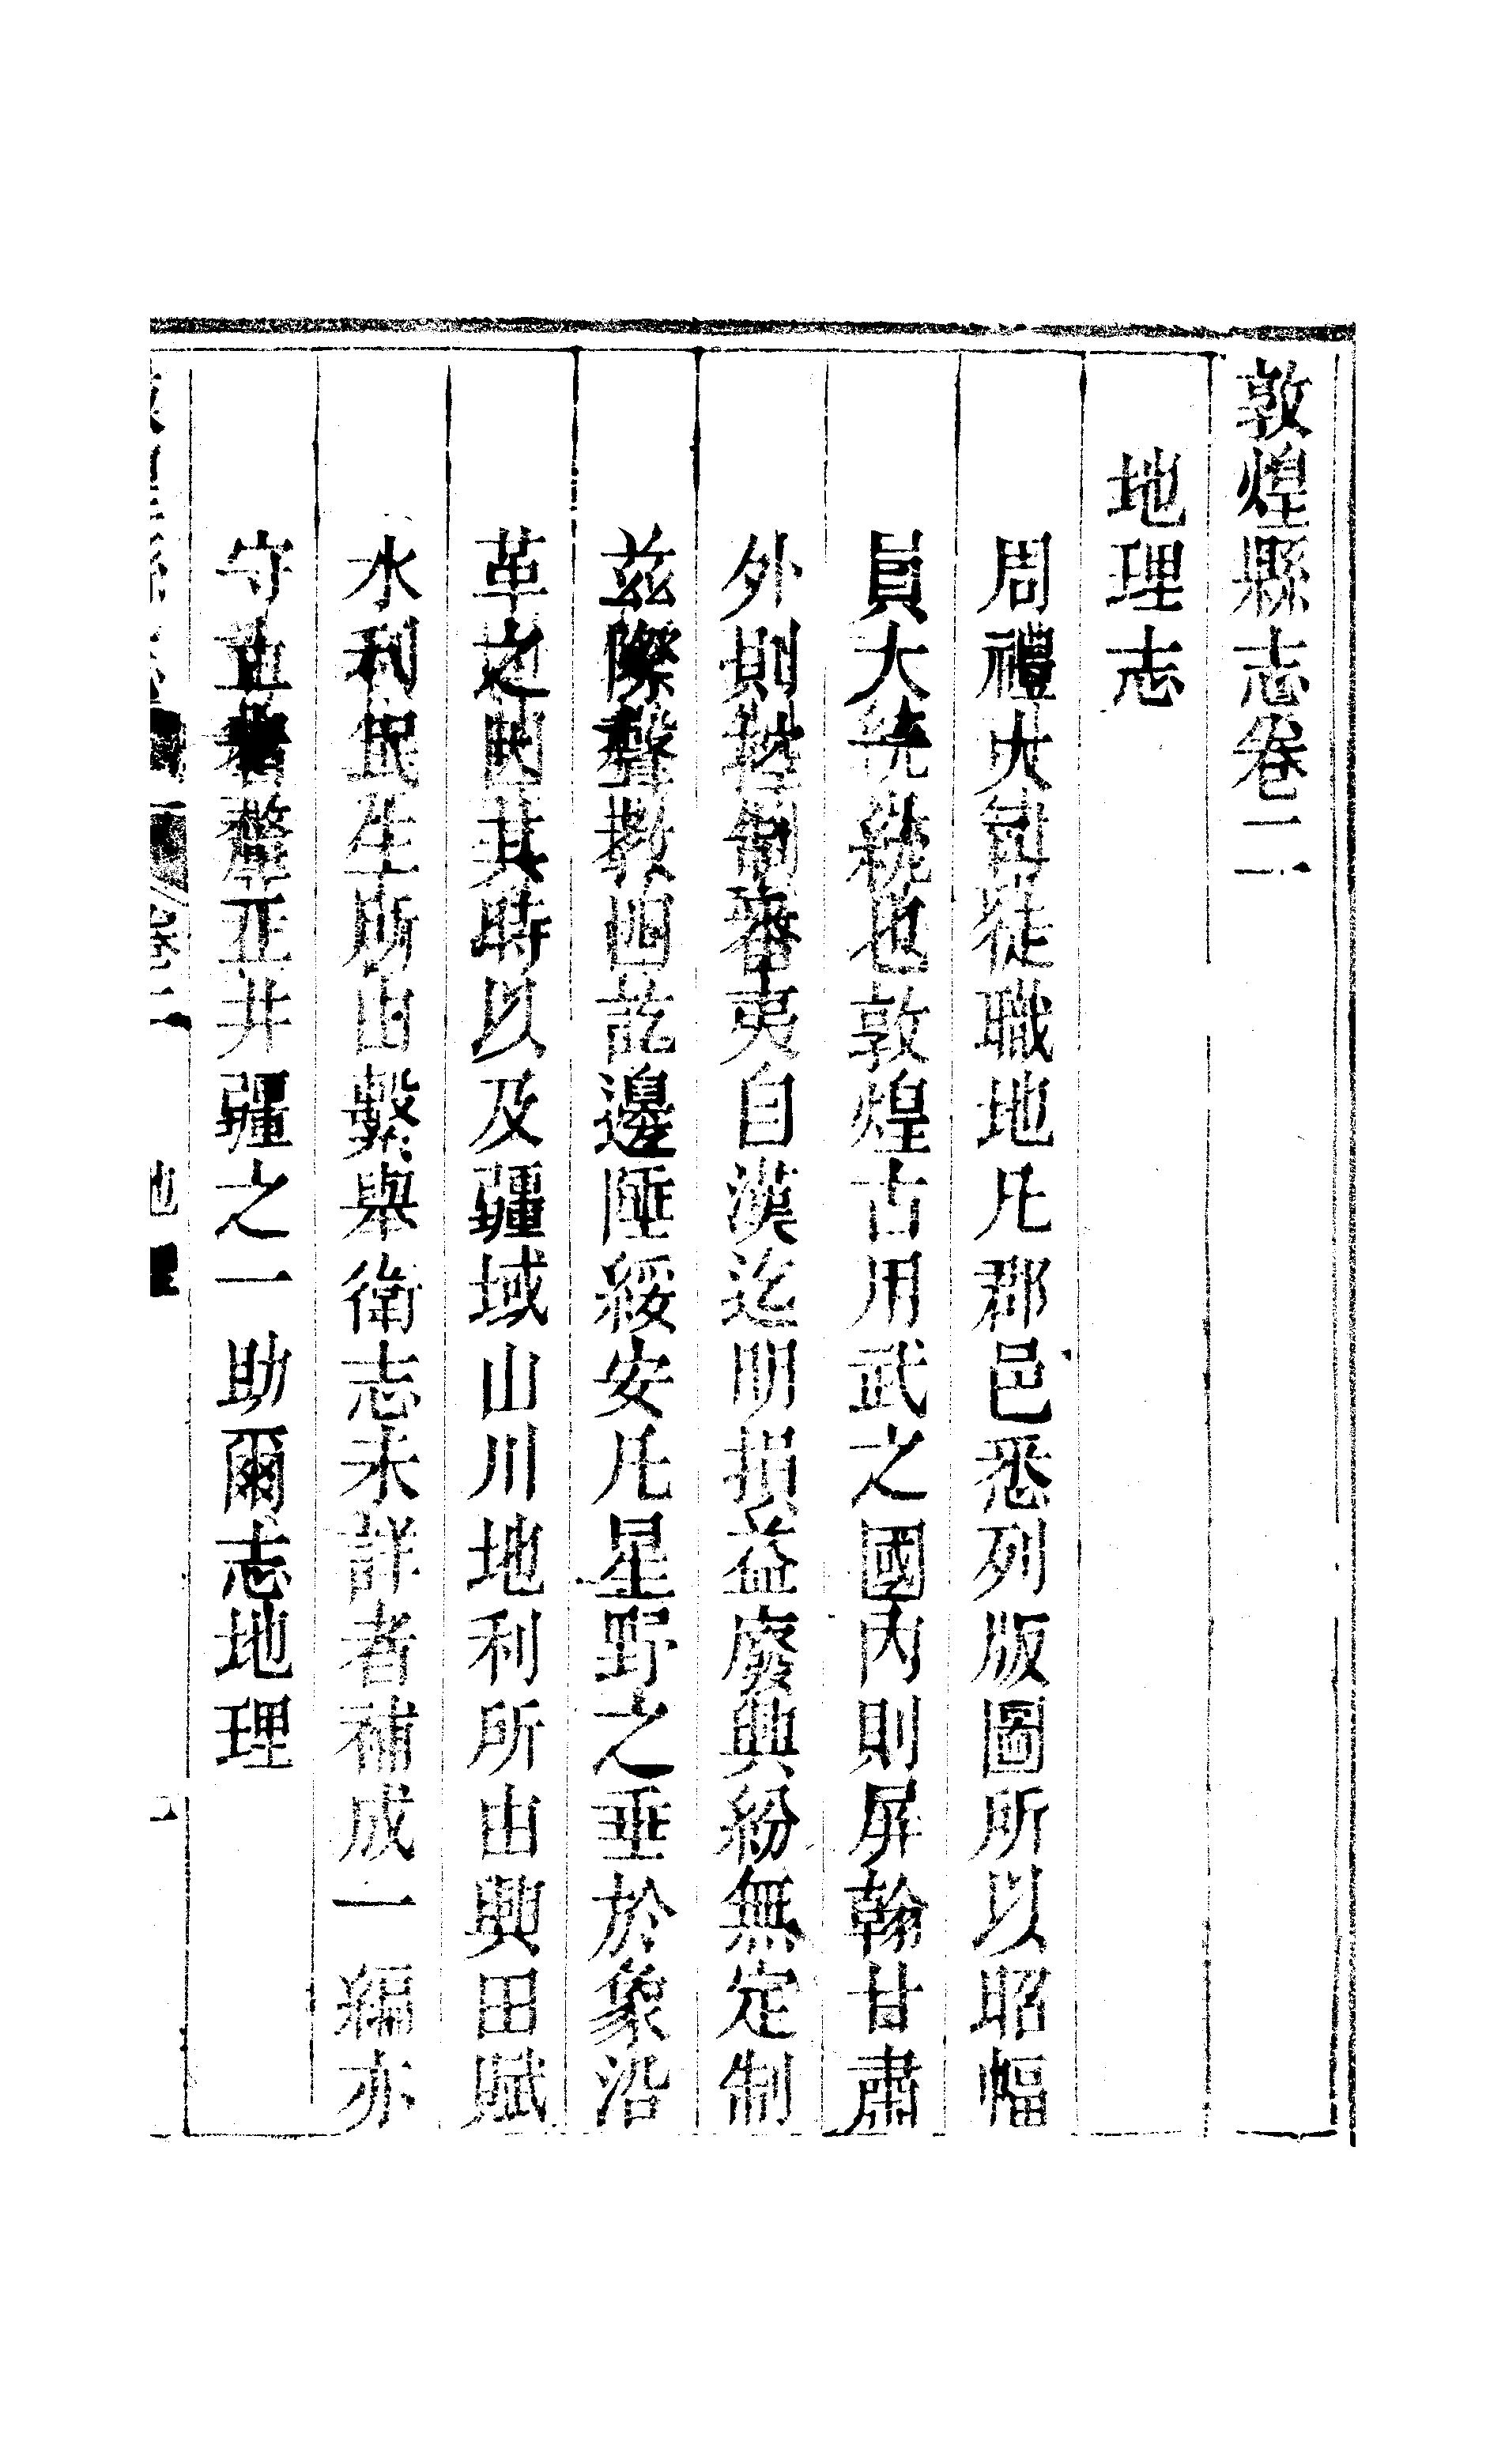 敦煌縣志卷二
地理志
周禮大司徒職地凡郡邑悉列版圖所以昭幅
員大統統也敦煌古用武之國內則屏翰甘肅
外則控制番夷自漢迄明損益廢興紛無定制
茲際聲教四訖邊陲綏安凡星野之垂於象沿
革之因其時以及疆域山川地利所由興田賦
水利民生所由繫舉衛志未詳者補成一編亦
守土者釐正井疆之一助爾志地理